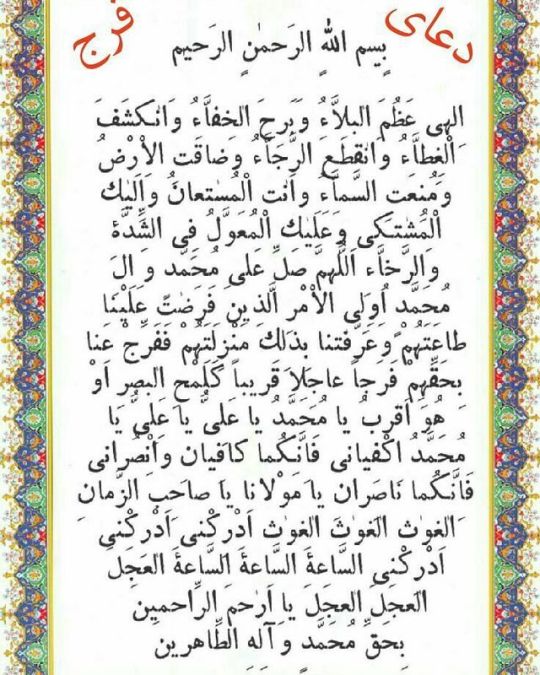 دعای فرج
بِسمِ اللهِ الرَحمٰنِ الرَحیمِ
الهی عَظُمَ البَلاَّءُ وَ بَرِحَ الخفاَّءُ وَ انکشَفَ
الْغِطاَّءُ وَ انْقَطَعَ الرَّجاَّءُ وَ ضاقَت الاْرْضُ
وَ مُنعَت السَّماَّءُ و اَنت الْمُستَعانُ وَ اِلَیك
الْمُشتَکی وَ عَلَیك الْمُعَوَّلُ فی الشِّدَّة
وَ الرَّخاَّء اَللّهمَّ صَلِّ عَلی مُحَمَّد وَ الَ
مُحَمَّد اُولی الاْمْر الَّذینَ فَرَضتَ عَلَیْنا
طاعَتَهُمْ وَ عَرَّفتنا بذلكَ مَنْزِلَتَهُمْ فَفَرِّجْ عَنا
بِحَقِّهِمْ فَرَجاً عاجِلا قَریباً کَلَمْحِ البصَرِ اَوْ
هُوَ اَقرَبُ یا مُحَمَّدُ یا عَلیُّ یا عَلیُّ یا
مُحَمَّدُ اکْفیانی فَانَّکُما کافیان وَ انْصُرانی
فَانَّکُما ناصَران یا مَوْلانا یا صاحَبَ الزَّمانِ
الغَوثَ الغَوثَ الغَوثَ اَدْرکْنی اَدْرکْنی
اَدْرکْنی السَّاعَةَ السَّاعَةَ السَّاعَةَ العَجَل
العَجَلَ العجَلَ یا اَرْحَمَ الرَّاحمین
بِحَقِّ مُحَمَّدٍ وَ آلهِ الطَّاهرین